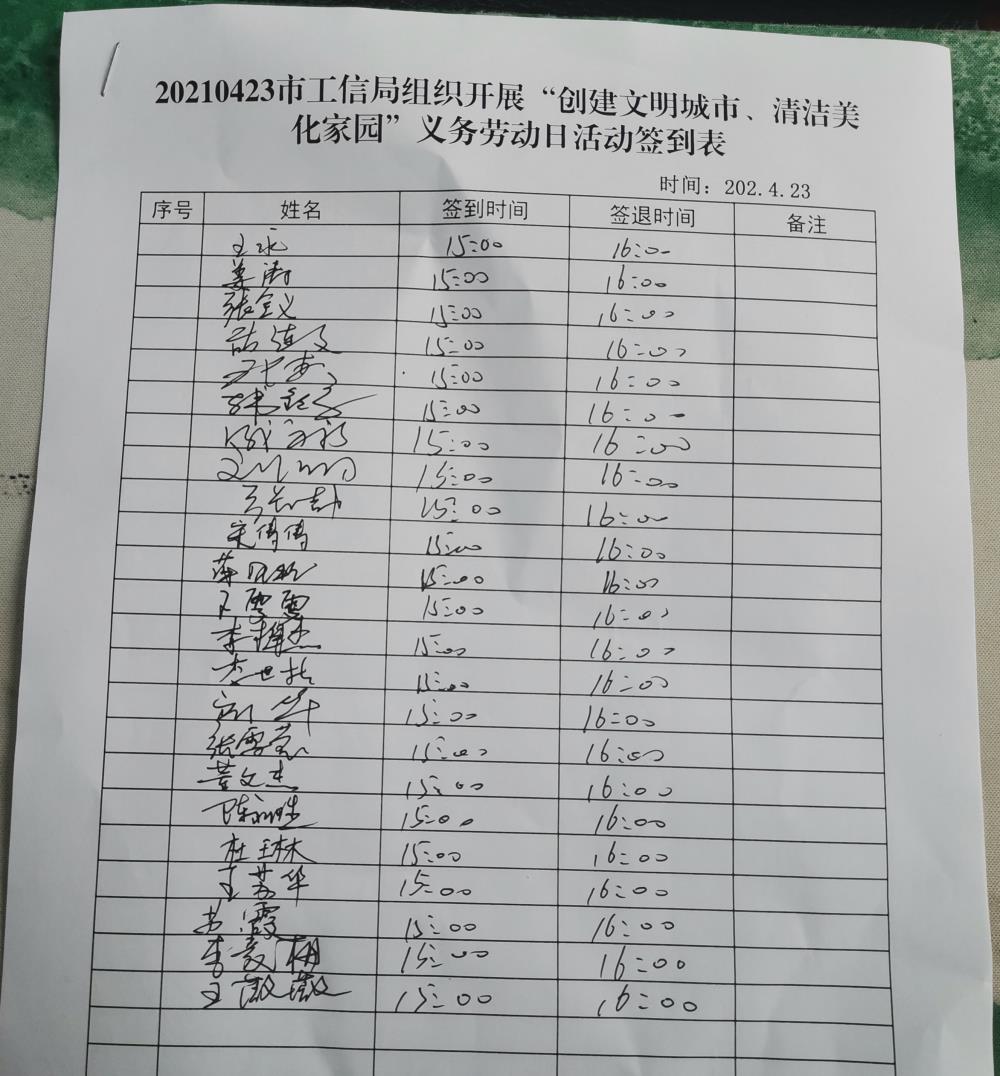 20210423市工信局组织开展“创建文明城市、清洁美
化家园”义务劳动日活动签到表
时间：202.4.23
序号 姓名 签到时间 签退时间 备注
王永 15:00 16:00
姜涛 15:00 16:00
张全义 15:00 16:00
15:00 16:00
15:00 16:00
15:00 16:00
15:00 16:00
15:00 16:00
15:00 16:00
宋倩倩 15:00 16:00
15:00 16:00
雪 15:00 16:00
李 杰 15:00 16:00
李世 15:00 16:00
刘华 15:00 16:00
张雪莹 15:00 16:00
黄文杰 15:00 16:00
陈 胜 15:00 16:00
杜玉林 15:00 16:00
王苏华 15:00 16:00
霞 15:00 16:00
李 梅 15:00 16:00
王薇薇 15:00 16:00